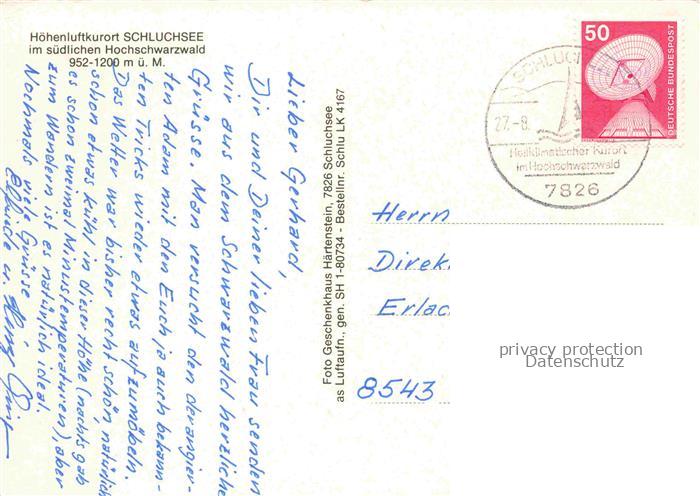 Höhenluftkurort SCHLUCHSEE
im südlichen Hochschwarzwald
952-1200 m ü. M.
Lieber Gerhard,
Dir und Deiner lieben Frau senden
wir aus dem Schwarzwald herzliche
Grüsse. Man versucht den derangier-
ten Adam mit den Euch ja auch bekann-
ten Tricks wieder etwas aufzumöbeln.
Das Wetter war bisher recht schön, natürlich
schon etwas kühl in dieser Höhe (nachts gab
es schon zweimal Minustemperaturen), aber
zum Wandern ist es natürlich ideal.
Nochmals viele Grüsse
Foto Geschenkhaus Härtenstein, 7826 Schluchsee
as Luftaufn., gen. SH 1-80734 - Bestellnr. Schlu LK 4167
50
DEUTSCHE BUNDESPOST
SCHLUCH
27.-8.
Heilklimatischer Kurort
im Hochschwarzwald
7826
Herrn
Direk
Erlac
8543
privacy protection
Datenschutz